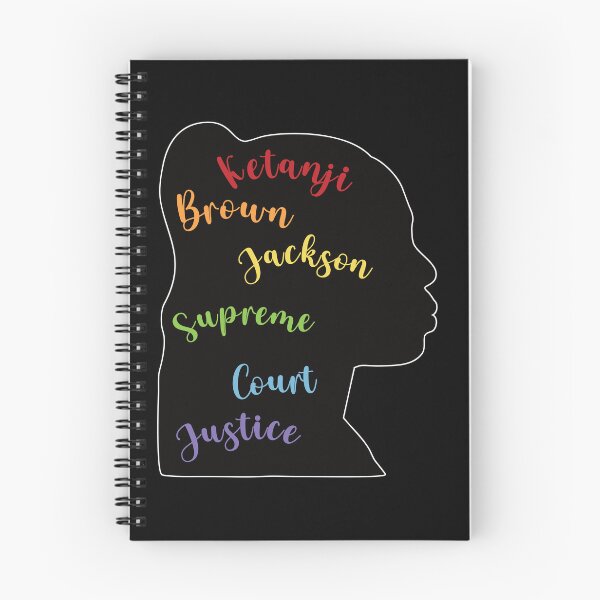 Ketanji
Brown
Jackson
Supreme
Court
Justice